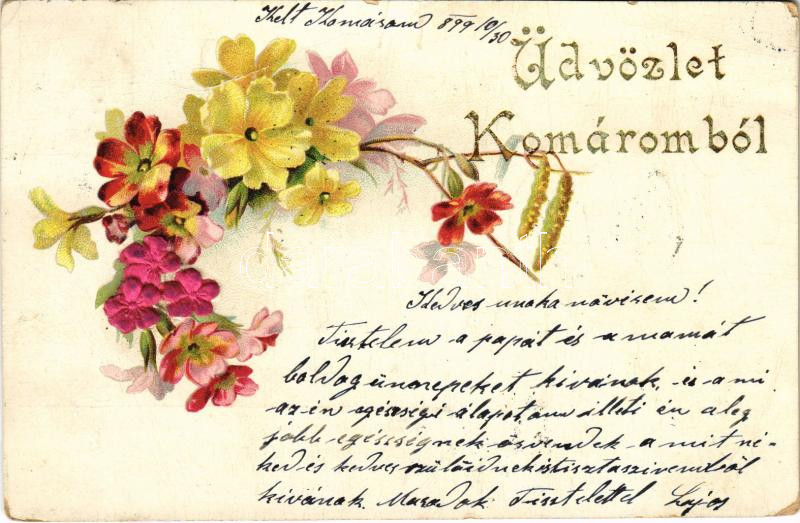 Kelt Komárom 899 10/30
Üdvözlet
Komáromból
Kedves unoka növérem!
Tisztelem a papát és a mamát
boldog ünnepeket kivánok, és a mi
az én egésségi álapotom illeti én a leg
jobb egésségnek örvendek a mit né-
ked és kedves szülöidnek is tiszta szivemböl
kivánok. Maradok Tisztelettel Lajos